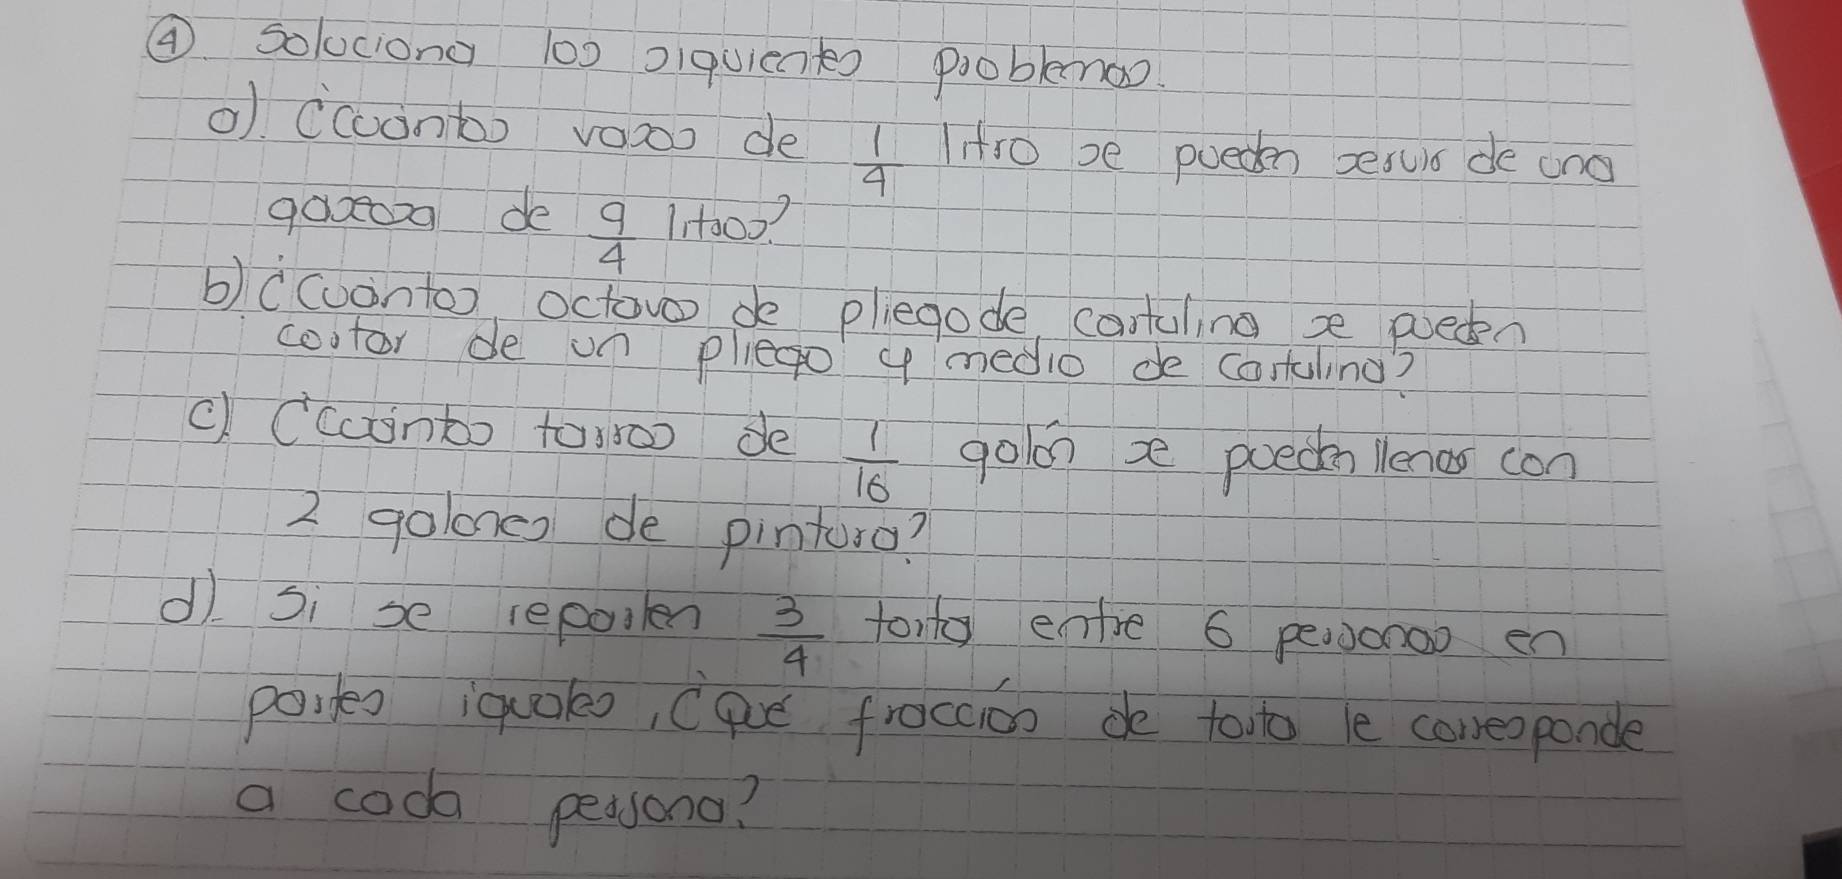 ④. Soluciona los siguientes problemas.
a). ¿Cuántos vasos de 1/4 litro se pueden servir de una
gaseosa de 9/4 litros?
b). ¿Cuántos octavos de pliego de cartulina se pueden
cortar de un pliego y medio de cartulina?
c). ¿Cuántos tarros de 1/16 galón se pueden llenar con
2 galones de pintura?
d). Si se reparten 3/4 torta entre 6 personas en
partes iguales, ¿Qué fracción de torta le corresponde
a cada persona?